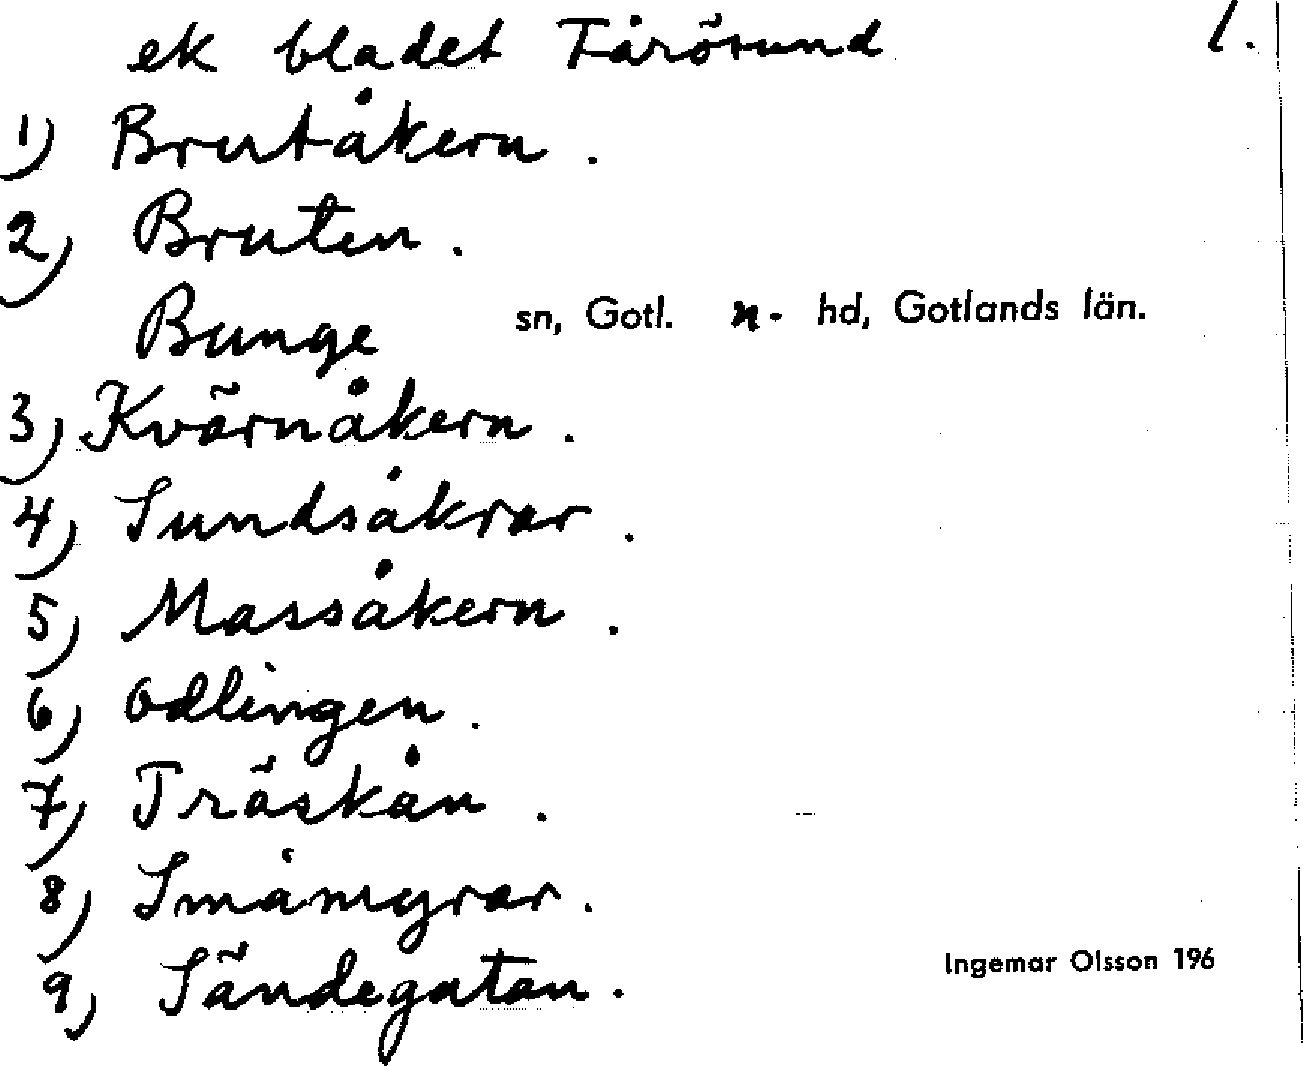 ek bladet Fårösund 1.
1) Brutåkern.
2) Bruten.
Bunge sn, Gotl. n- hd, Gotlands län.
3) Kvärnåkern.
4) Sundsåkrar.
5) Massåkern.
6) Odlingen.
7) Träskån.
8) Småmyrar.
9) Sändegatan.
Ingemar Olsson 196